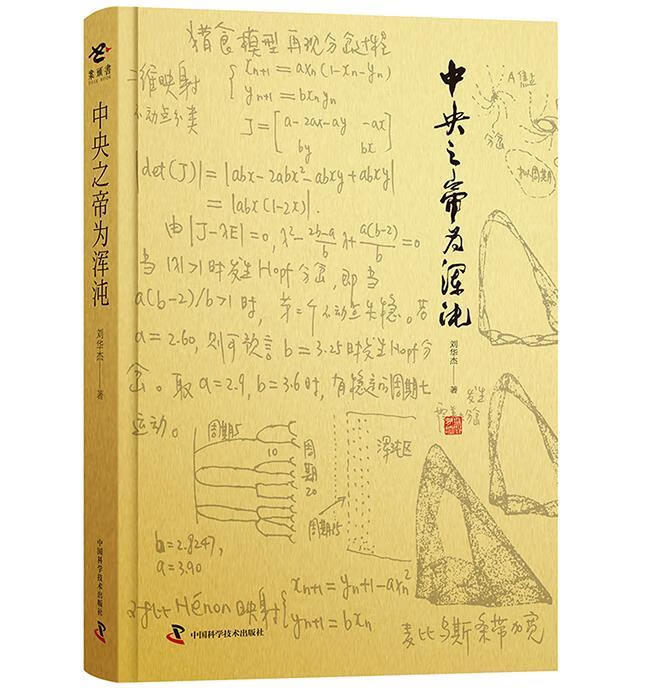 案头書
DESK BOOK
中央之帝为浑沌
刘华杰——著
中国科学技术出版社
猎食模型再现分岔过程
二维映射
不动点分类
x_{n+1} = ax_n(1-x_n-y_n)
y_{n+1} = bx_ny_n
J = [a-2ax-ay -ax
by bx]
|det(J)| = |abx-2abx²-abxy+abxy|
= |abx(1-2x)|.
由|J-λE|=0, λ²-(2b-a)/b λ+a(b-2)/b=0
当|λ|>1时发生Hopf分岔,即当
a(b-2)/b>1时,第二个不动点失稳。若
a=2.60,则可预言b=3.25时发生Hopf分
岔。取a=2.9,b=3.6时,有稳定的周期七
运动。
A 焦点
分岔
拟周期
中央之帝为浑沌
刘华杰——著
发生
分岔
周期5
10
周期20
周期15
浑沌区
b=2.8247,
a=3.90
对比Hénon映射
x_{n+1} = y_n+1-ax_n²
y_{n+1} = bx_n
中国科学技术出版社
麦比乌斯条带加宽